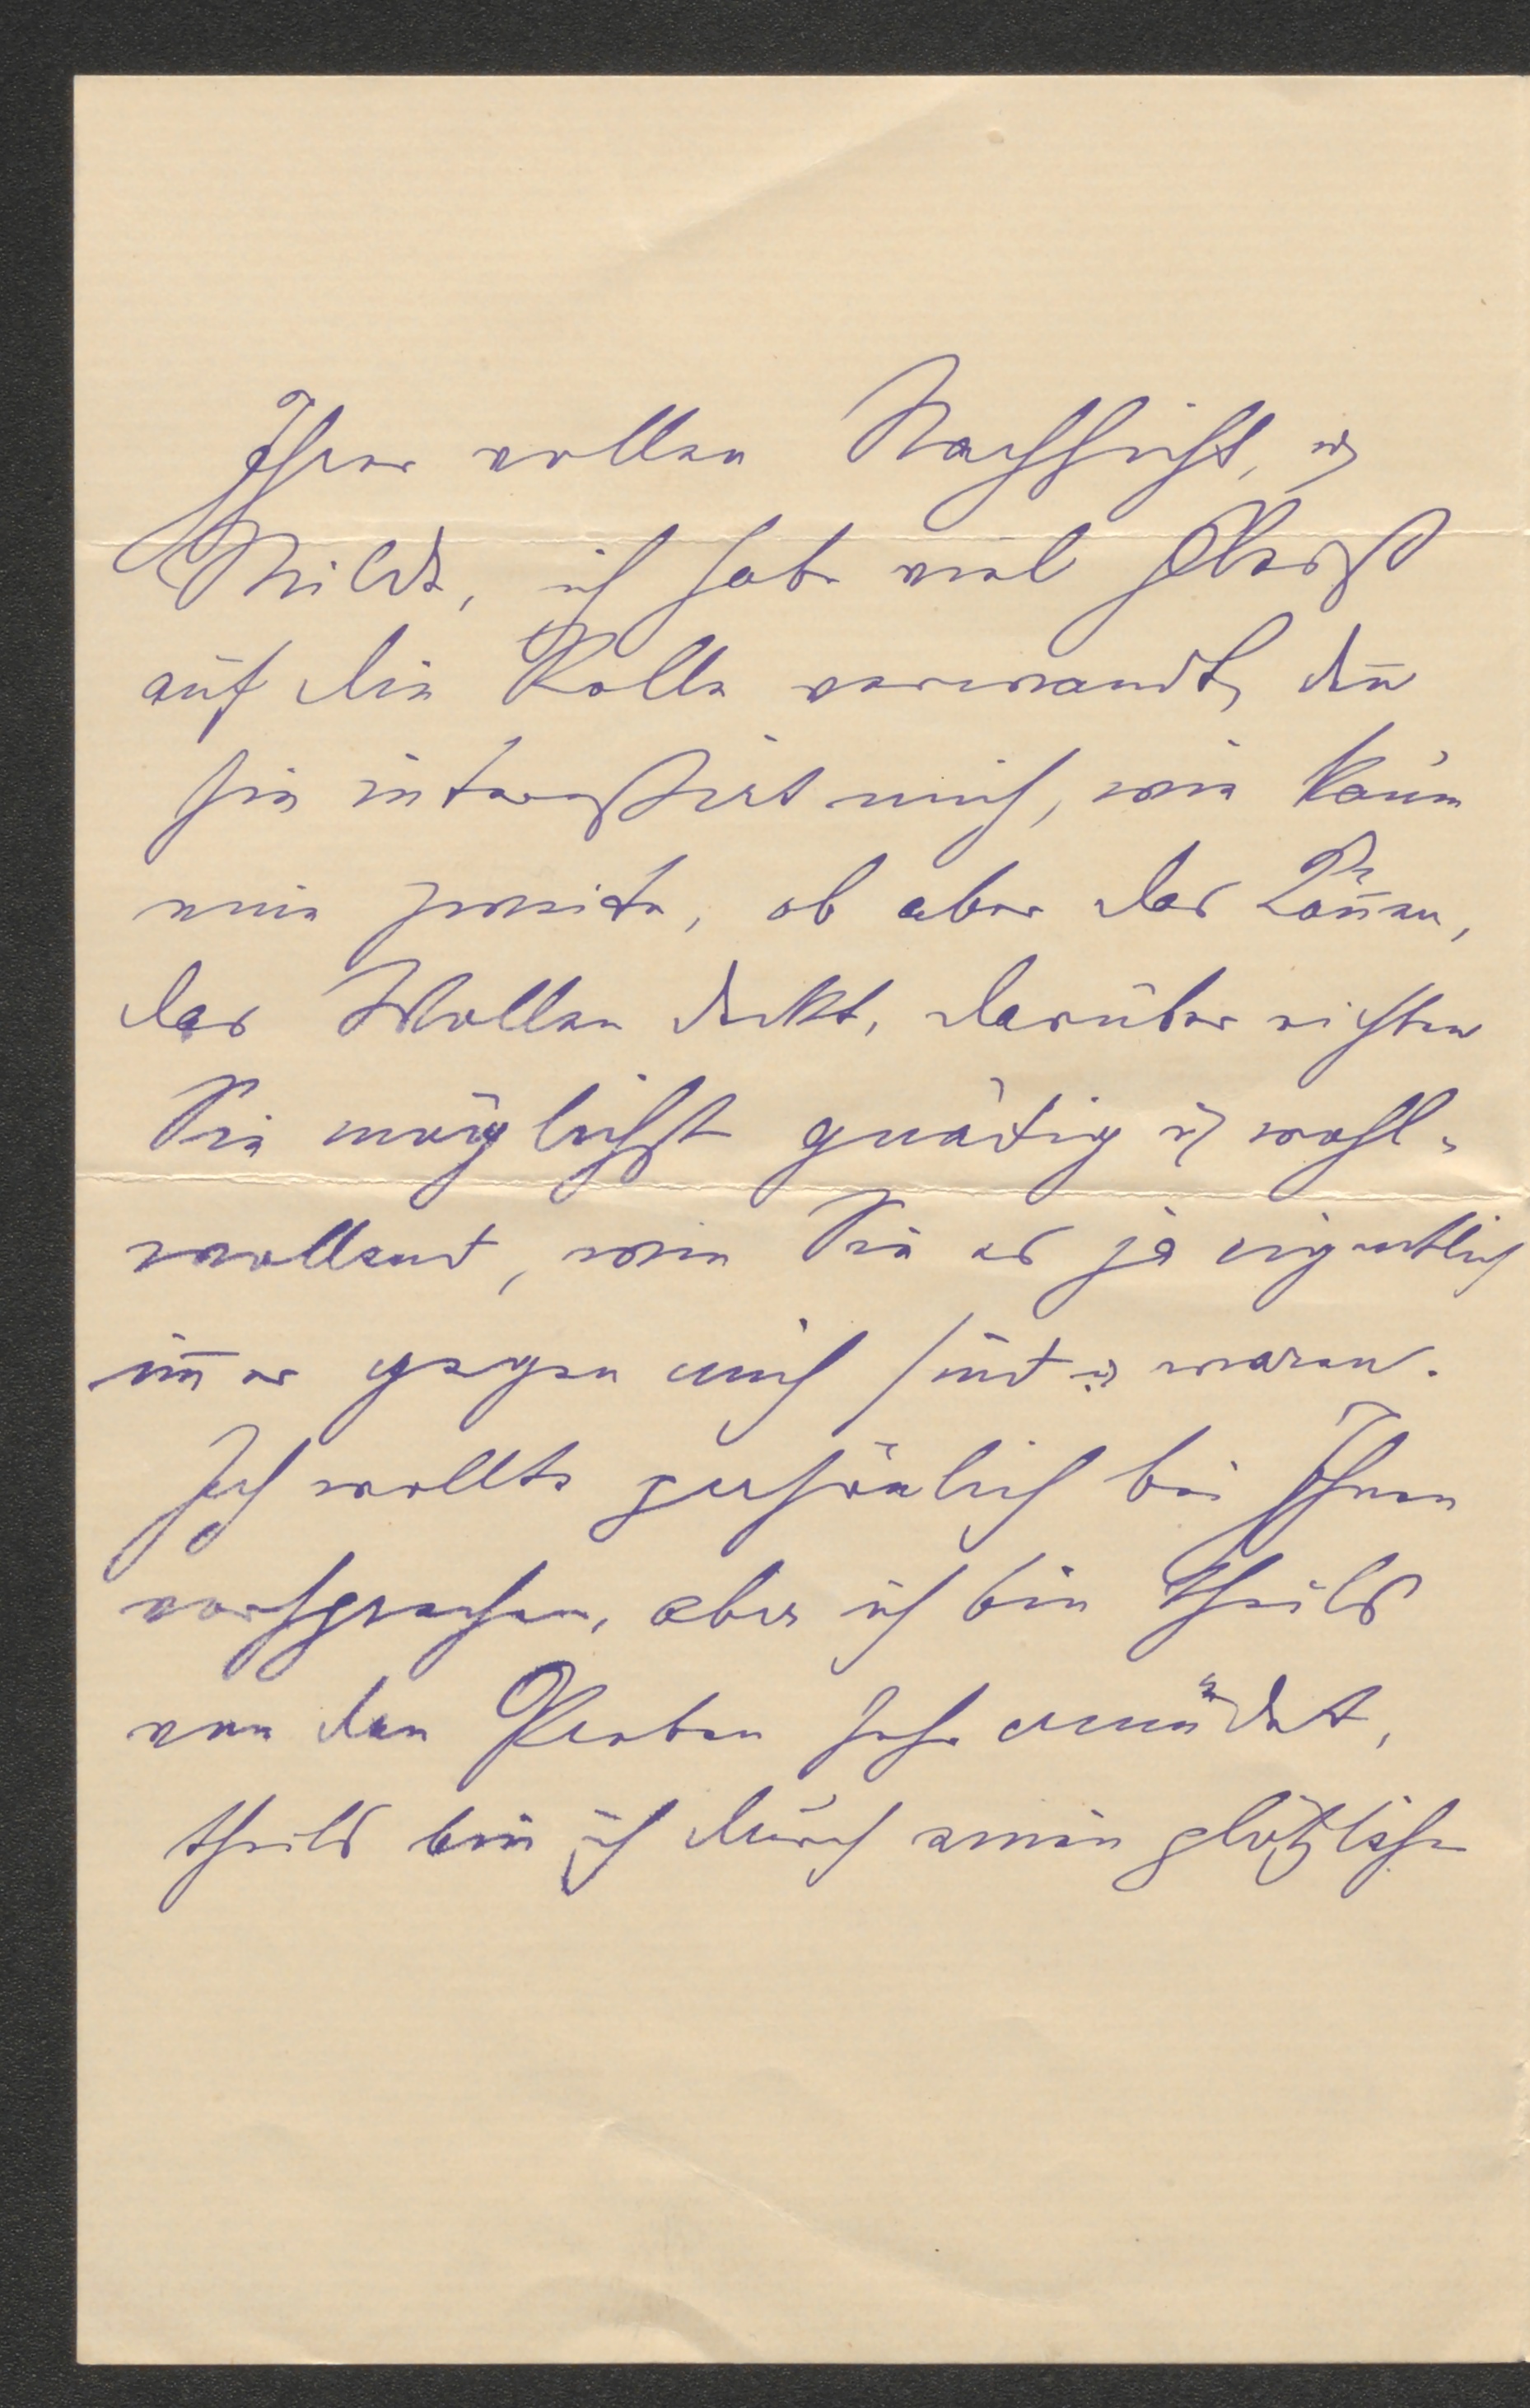 Ihrer vollen Nachsicht, u
Milde, ich habe viel Fleiß
auf die Rolle verwandt, den̄
sie interessirt mich, wie kaum
eine zweite, ob aber das Kön̄en,
das Wollen deckt, darüber richten
Sie möglichst gnädig u wohl-
wollend, wie Sie es ja eigentlich
im̄er gegen mich sind u waren.
Ich wollte persönlich bei Ihnen
vorsprechen, aber ich bin theils
von den Proben sehr ermüdet,
theils bin ich durch eine plötzliche